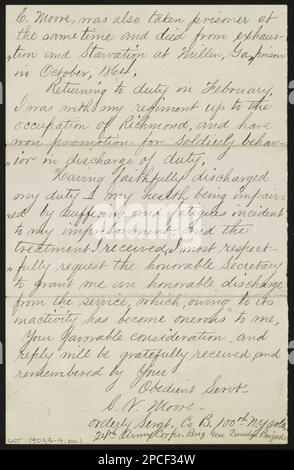 C. Moore, was also taken prisoner at
the same time and died from exhaus-
"tion and Starvation at Millen, Ga, prison
in October, 1864.
Returning to duty in February,
I was with my regiment up to the
occupation of Richmond, and have
won promotion for Soldierly behav-
"ior in discharge of duty.
Having faithfully discharged
my duty & my health being impair-
ed by suffering and fatigues incident
to my imprisonment and the
treatment I received, I most respect-
"fully request the honorable Secretary
to grant me an honorable discharge
from the service, which, owing to its
inactivity has become onerous to me,
Your favorable consideration and
reply will be gratefully received and
remembered by Your
Obedient Servt-
C. N. Moore-
orderly Sergt. Co B. 100th N.Y. vols.
24th Army Corps. Brig Gen Dandy's Brigade
LOT 14043-4, no. 1
alamy
Image ID: 2FCF34W
www.alamy.com